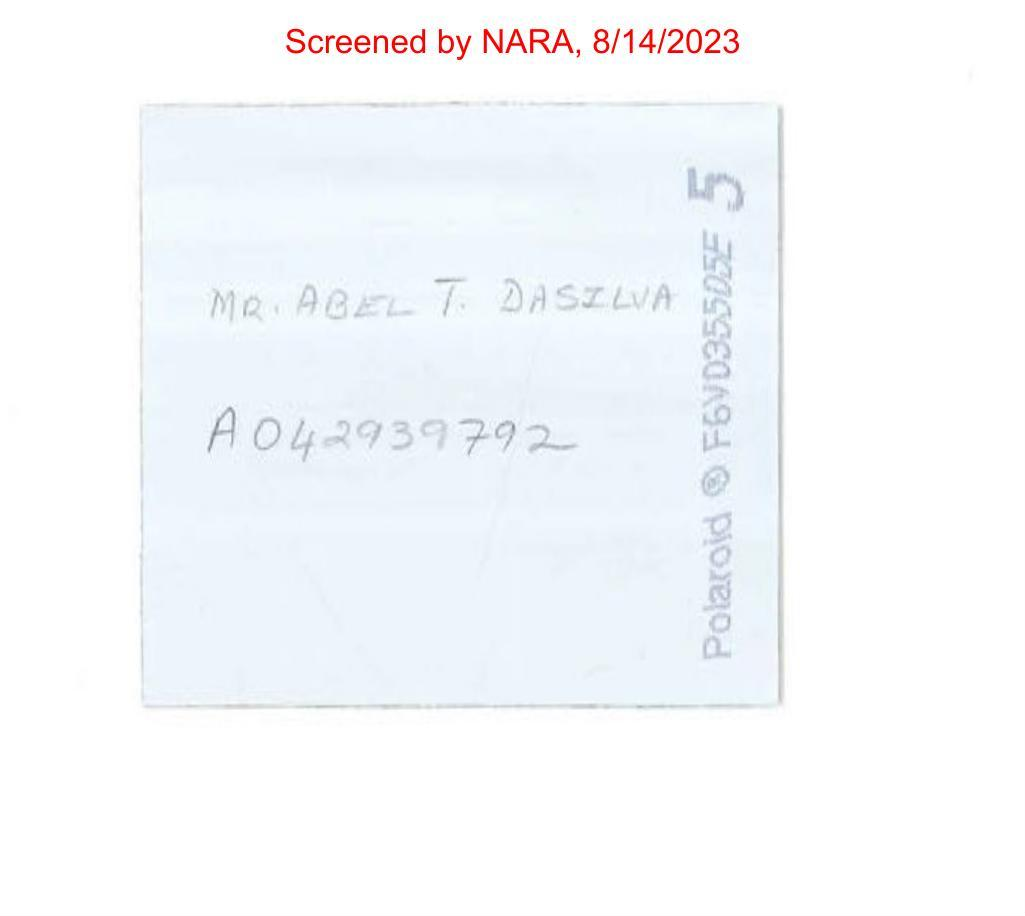 Screened by NARA, 8/14/2023
MR. ABEL T. DASILVA
A042939792
Polaroid ® F6VD35505E 5